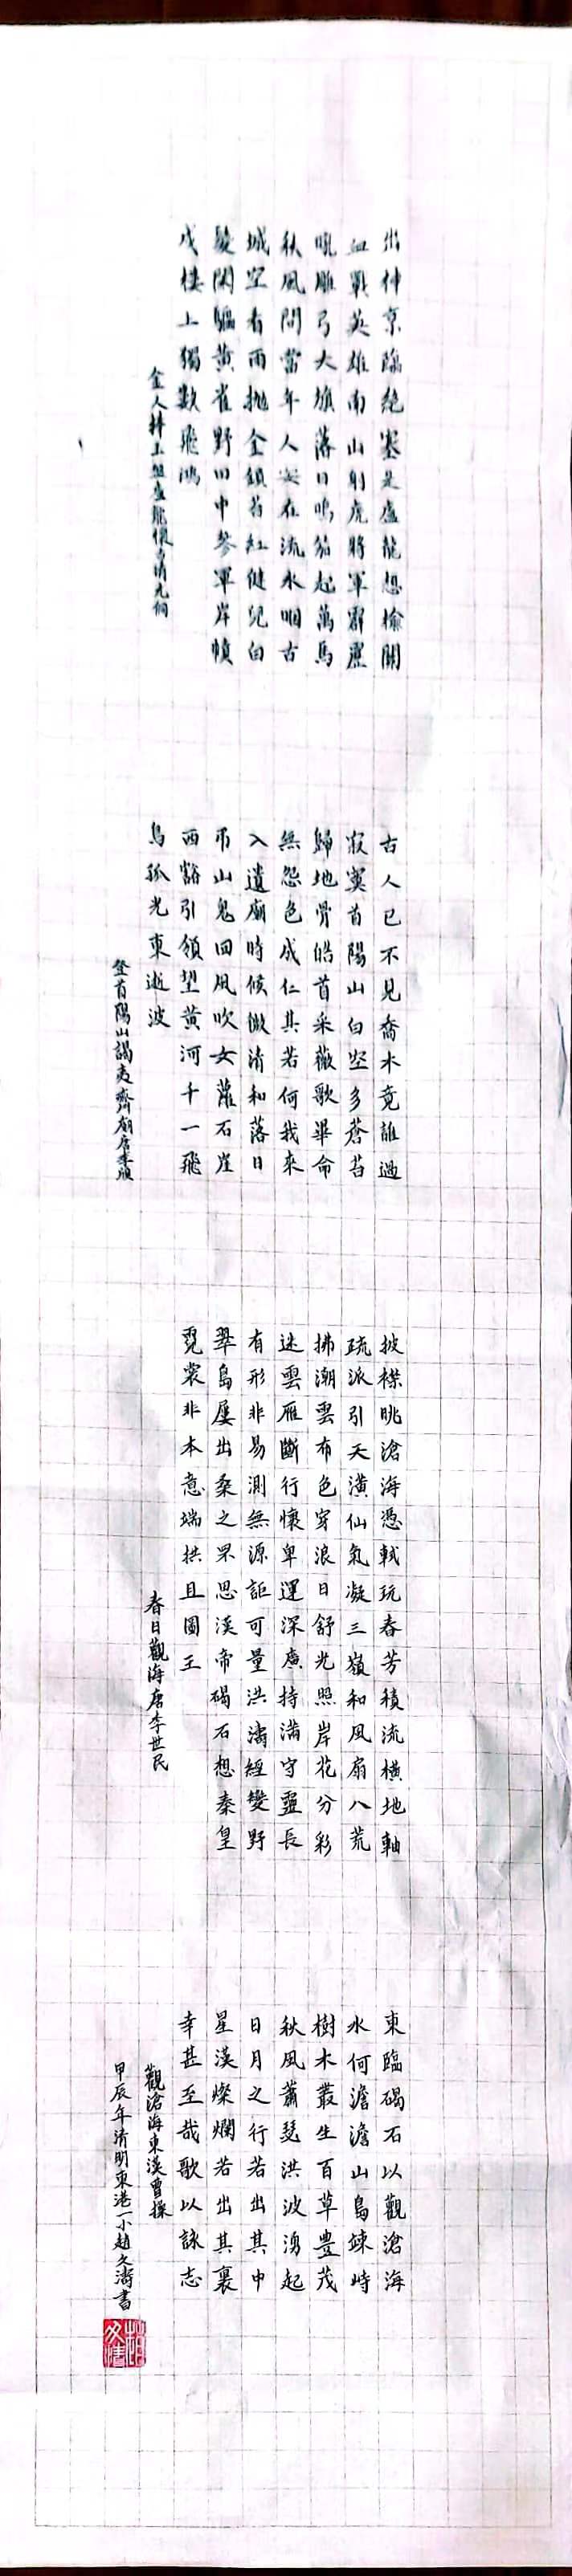 出神京臨絕塞是盧龍想榆關
血戰英雄南山射虎將軍霹靂
吼雕弓大旗落日鳴笳起萬馬
秋風問當年人安在流水咽古
城空看雨拋金鎖苔紅健兒白
髮閑驅黃雀野田中參軍岸幘
戍樓上獨數飛鴻
金人捧玉盤盧龍懷古清尤侗
古人已不見喬木竟誰過
寂寞首陽山白空多蒼苔
歸地骨皓首采薇歌畢命
無怨色成仁其若何我來
入遺廟時候微清和落日
吊山鬼回風吹女蘿石崖
西豁引領望黃河千一飛
鳥孤光東逝波
登首陽山謁夷齊廟唐李頎
披襟眺滄海憑軾玩春芳積流橫地軸
疏派引天潢仙氣凝三嶺和風扇八荒
拂潮雲布色穿浪日舒光照岸花分彩
迷雲雁斷行懷卑運深廣持滿守靈長
有形非易測無源詎可量洪濤經變野
翠島屢出桑之罘思漢帝碣石想秦皇
霓裳非本意端拱且圖王
春日觀海唐李世民
東臨碣石以觀滄海
水何澹澹山島竦峙
樹木叢生百草豊茂
秋風蕭瑟洪波湧起
日月之行若出其中
星漢燦爛若出其裏
幸甚至哉歌以詠志
觀滄海東漢曹操
甲辰年清明東港一小趙文濤書